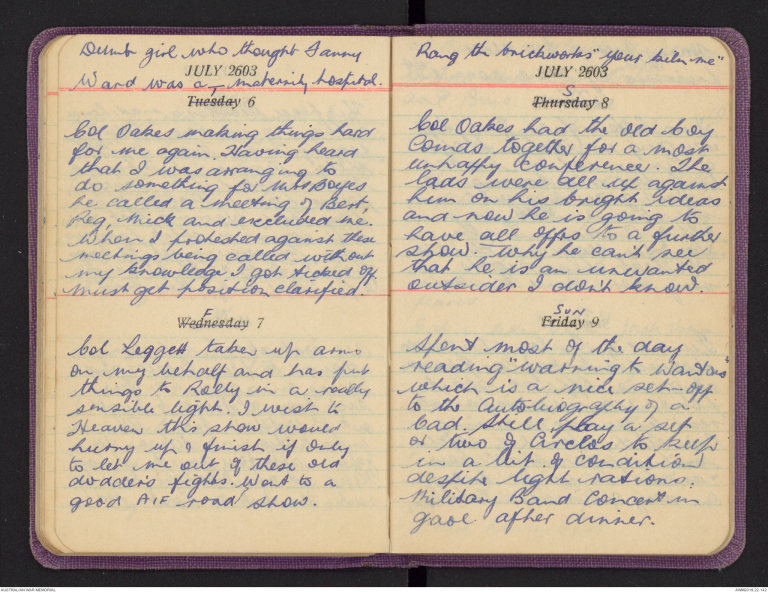 Dumb girl who thought Fanny
Ward was a maternity hospital.
JULY 2603
T
Tuesday 6
Col Oakes making things hard
for me again. Having heard
that I was arranging to
do something for Mrs Boyes
he called a meeting of Bert,
Reg, Mick and excluded me.
When I protested against these
meetings being called without
my knowledge I got ticked off.
Must get position clarified.
F
Wednesday 7
Col Leggett taken up arms
on my behalf and has put
things to Rolly in a really
sensible light. I wish to
Heaven this show would
hurry up & finish if only
to let me out of these old
dodders fights. Went to a
good AIF road show.
Rang the brickworks "your kiln me"
JULY 2603
S
Thursday 8
Col Oakes had the old boy
Comds together for a most
unhappy conference. The
lads were all up against
him on his bright ideas
and now he is going to
have all offrs to a further
show. Why he can't see
that he is an unwanted
outsider I don't know.
SUN
Friday 9
Spent most of the day
reading "Warning to Wantons"
which is a nice set-off
to the Autobiography of a
Cad. Still play a set
or two of Circlos to keep
in a bit of condition
despite light rations.
Military Band Concert in
gaol after dinner.
AUSTRALIAN WAR MEMORIAL
AWM2019.22.142